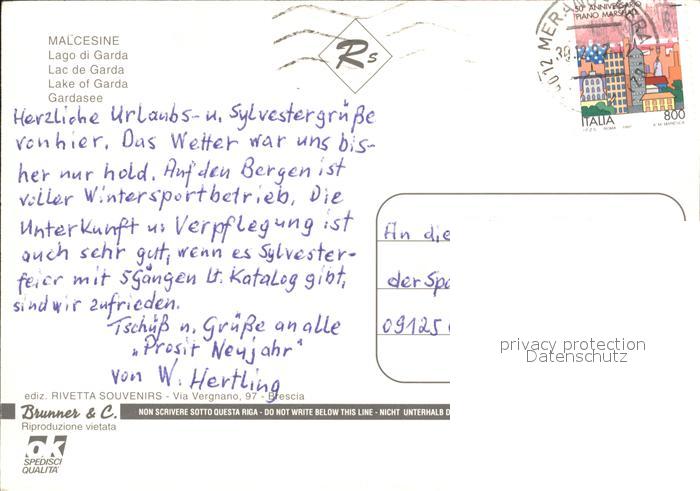 MALCESINE
Lago di Garda
Lac de Garda
Lake of Garda
Gardasee
Rs
50° ANNIVERSARIO
PIANO MARSHALL
ITALIA
800
Herzliche Urlaubs- u. Sylvestergrüße
von hier. Das Wetter war uns bis-
her nur hold. Auf den Bergen ist
voller Wintersportbetrieb. Die
Unterkunft u. Verpflegung ist
auch sehr gut, wenn es Sylvester-
feier mit 5 Gängen lt. Katalog gibt,
sind wir zufrieden.
Tschüß u. Grüße an alle
"Prosit Neujahr"
von W. Hertling
An die
der Spa
09125
privacy protection
Datenschutz
ediz. RIVETTA SOUVENIRS - Via Vergnano, 97 - Brescia
Brunner & C.
NON SCRIVERE SOTTO QUESTA RIGA - DO NOT WRITE BELOW THIS LINE - NICHT UNTERHALB D
Riproduzione vietata
ok
SPEDISCI
QUALITÀ